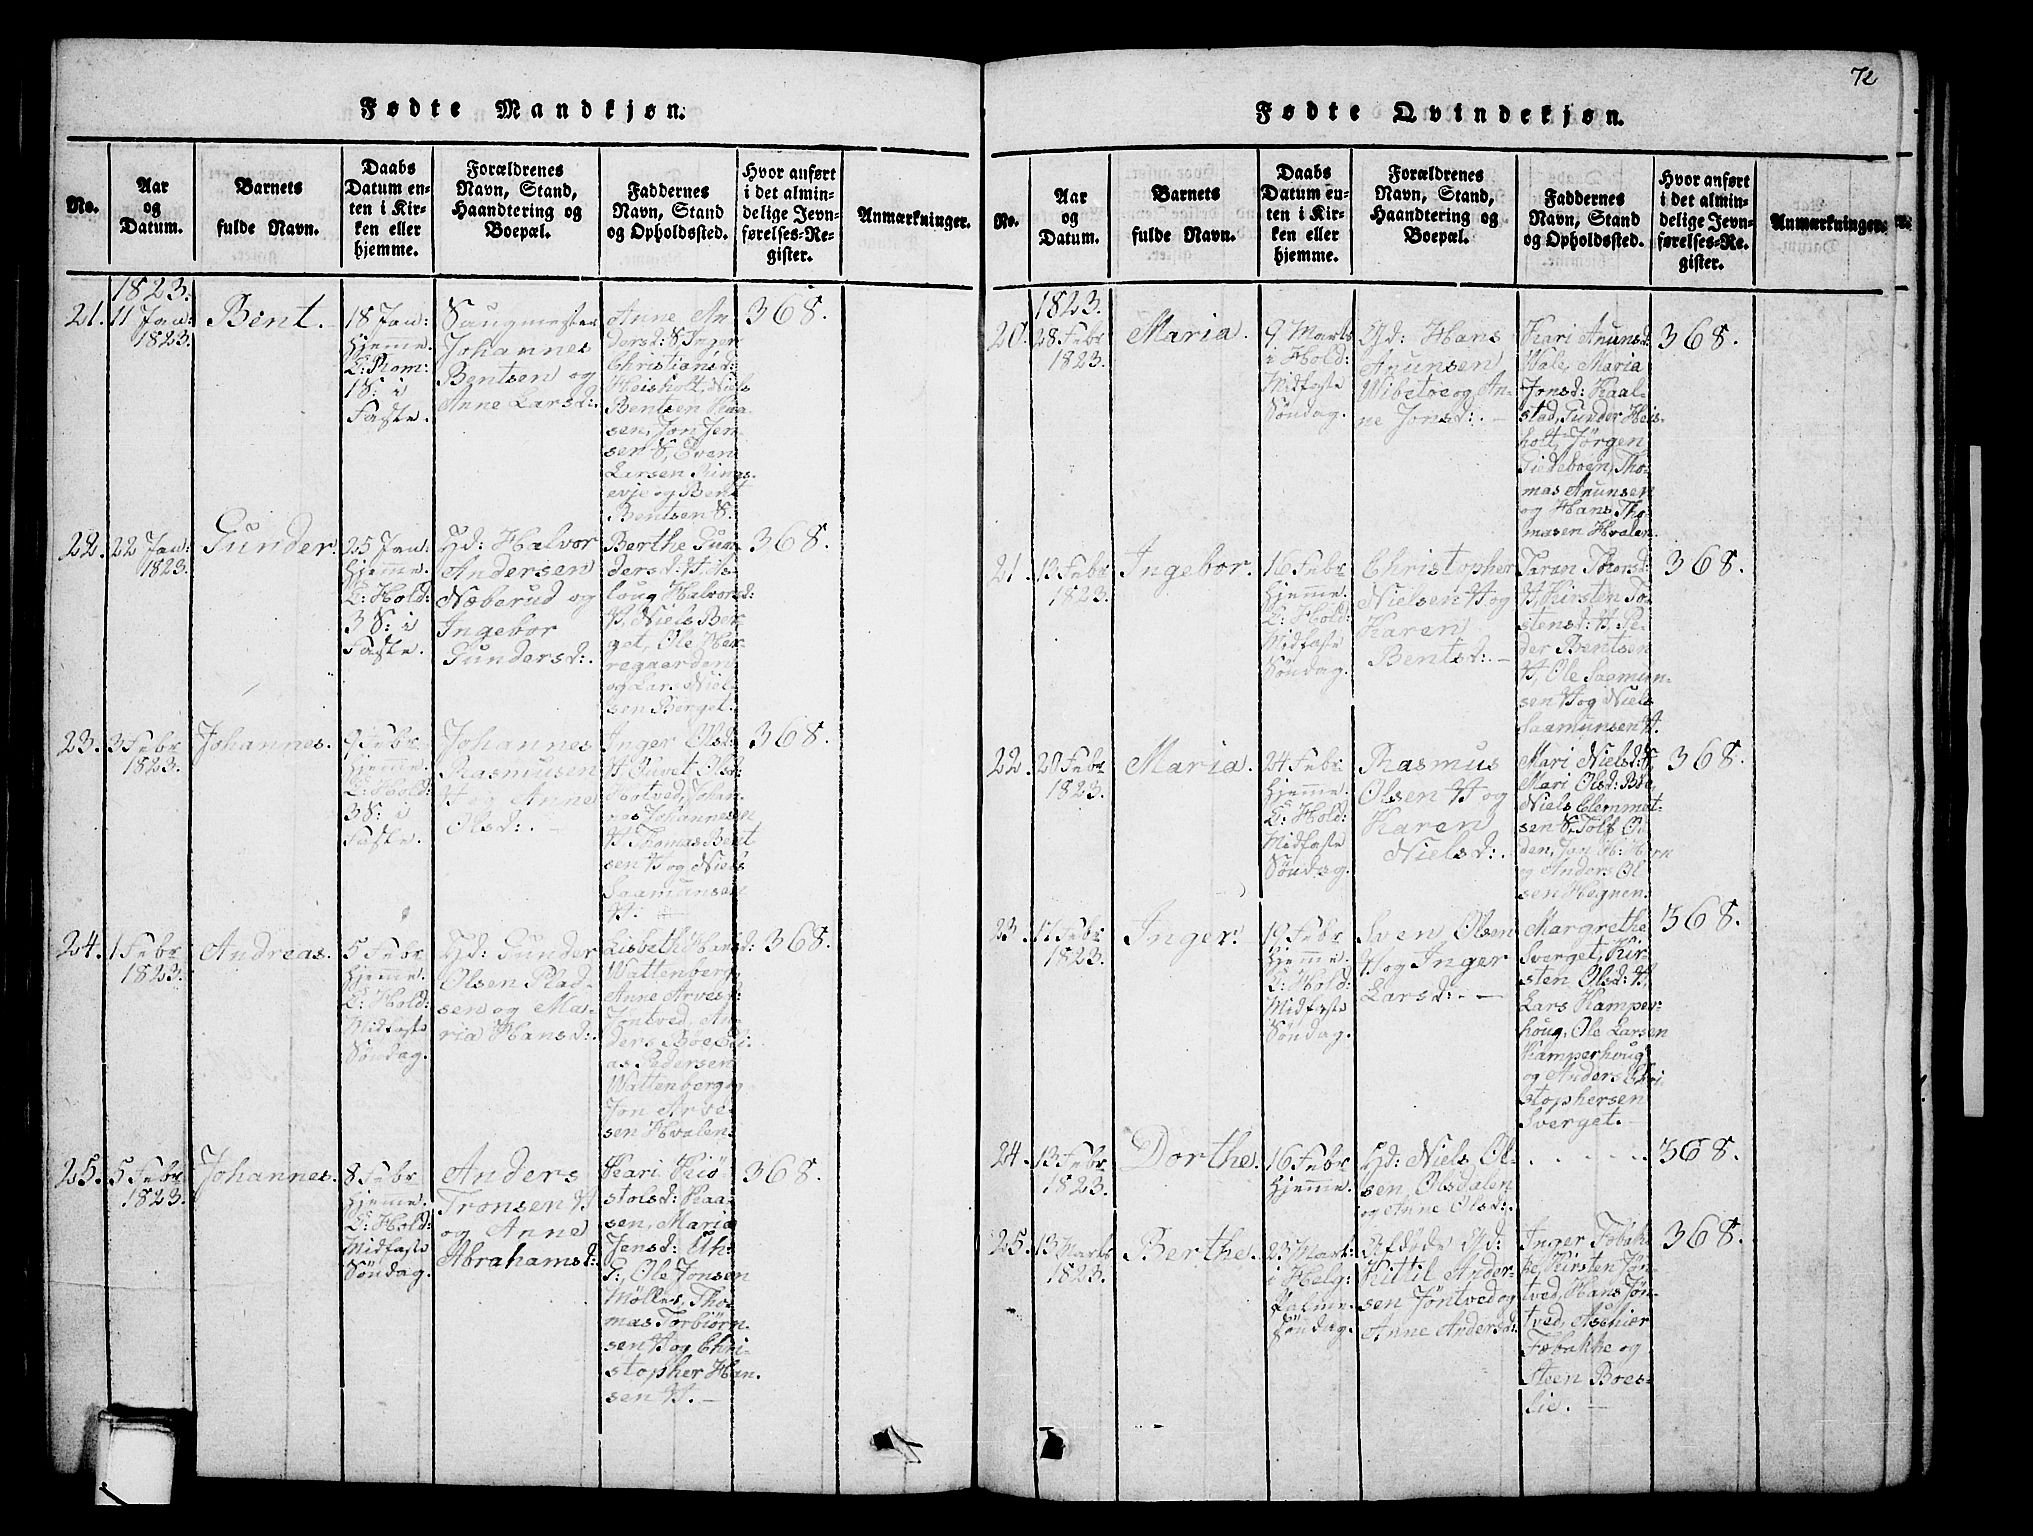 72
Fødte Mandkjøn.
No.
Aar
og
Datum.
Barnets
fulde Navn.
Daabs
Datum en-
ten i Kir-
ken eller
hjemme.
Forældrenes
Navn, Stand,
Haandtering og
Boepæl.
Faddernes
Navn, Stand
og Opholdssted.
Hvor anført
i det almin-
delige Jevn-
førelses-Re-
gister.
Anmærkninger.
1823.
21.
11 Jan:
1823.
Bent.
18 Jan:
hjemme.
C: Rom:
1 S: i
Faste.
Saugmester
Johannes
Bentsen og
Anne Larsd:
Anne An
dersd: S Inger
Christiansd:
Heisholt, Niels
Bentsen Kaa
sen, Jon Jen
sen S, Even
Larsen Rings
evje og Bent
Bentsen S.
368.
22.
22 Jan:
1823.
Gunder.
25 Jan:
hjemme.
C: Hold:
3 S: i
Faste.
Gd: Halvor
Andersen
Næberud og
Ingebor
Gundersd:
Berthe Gun
dersd: H As
loug Halvorsd:
H, Niels Ber
get, Ole Her
regaarden
og Lars Niel
sen Berget.
368.
23.
3 Febr
1823.
Johannes.
9 Febr
hjemme.
C: Hold:
3 S: i
Faste.
Johannes
Rasmusen
H og Anne
Olsd:
Inger Olsd:
H Juvet Olsd:
Hotved, Johan
nes Johannesen
H Thomas Bent
sen H og Niels
Saamunsen
H.
368.
24.
1 Febr
1823.
Andreas.
5 Febr
hjemme.
C: Hold:
Midfaste
Søndag.
Gd: Gunder
Olsen Plad-
sen og Ma-
ria Hansd:
Lisbeth Hansd:
Wattenberg,
Anne Arvesd:
Jöntved, An
ders Böe Eli
as Pedersen
Wattenberg og
Jon Arve
sen Hvalen.
368.
25.
5 Febr
1823.
Johannes.
8 Febr
hjemme.
C: Hold:
Midfaste
Søndag.
Anders
Tronsen H
og Anne
Abrahamsd:
Kari Kiö-
stolsd: Kaa-
sen, Maria
Jensd:
Ole Jonsen
Møllen, Tho-
mas Torbiörn
sen H og Chri-
stopher Han
sen H.
368.
Fødte Qvindekjøn.
No.
Aar
og
Datum.
Barnets
fulde Navn.
Daabs
Datum en-
ten i Kir-
ken eller
hjemme.
Forældrenes
Navn, Stand,
Haandtering og
Boepæl.
Faddernes
Navn, Stand
og Opholdssted.
Hvor anført
i det almin-
delige Jevn-
førelses-Re-
gister.
Anmærkninger.
1823.
20.
28 Febr
1823.
Maria.
9 Marts
i Hold:
Midfaste
Søndag.
Gd: Hans
Anunsen
Wibetoe og An-
ne Jonsd:
Kari Anunsd:
Wale, Maria
Jonsd: Kaal-
stad, Gunder Heis-
holt, Jörgen
Giedeboen, Tho-
mas Anunsen
og Hans Tho-
masen Hvalen.
368.
21.
13 Febr
1823.
Ingebor.
16 Febr
hjemme.
C: Hold:
Midfaste
Søndag.
Christopher
Nielsen H og
Karen
Bentsd:
Taran Thorsd:
H, Kirsten To-
stensd: H, Pe-
der Bentsen
H, Ole Saamun-
sen H og Niels
Saamunsen H.
368.
22.
20 Febr
1823.
Maria.
24 Febr
hjemme.
C: Hold:
Midfaste
Søndag.
Rasmus
Olsen H og
Karen
Nielsd:
Mari Nielsd:
Mari Olsd: Böe,
Niels Clemmet-
sen S, Tolf
den, Jon H: Hern
og Anders Ol
sen Hegnen.
368.
23.
1823.
Inger.
19 Febr
hjemme.
C: Hold:
Midfaste
Søndag.
Sven Olsen
H og Inger
Larsd:
Margrethe
Sverget, Kir-
sten Olsd: H,
Lars Kamper-
houg, Ole Larsen
Kamperhoug
og Anders Chri
stophersen
Sverget.
368.
24.
13 Febr
1823.
Dorthe.
16 Febr
hjemme.
Gd: Niels Ol-
sen Olsdalen
og Anne Olsd:
. . . . .
368.
25.
13 Marts
1823.
Berthe.
23 Mart:
i Helg:
Palme
Søndag.
Afdøde Gd:
Kittil Ander-
sen Jöntved og
Anne Andersd:
Inger Fæbak-
ke, Kirsten Jön-
tved, Hans Jön-
tved, Asemier
Fæbakke og
Steen Boes-
lie.
368.